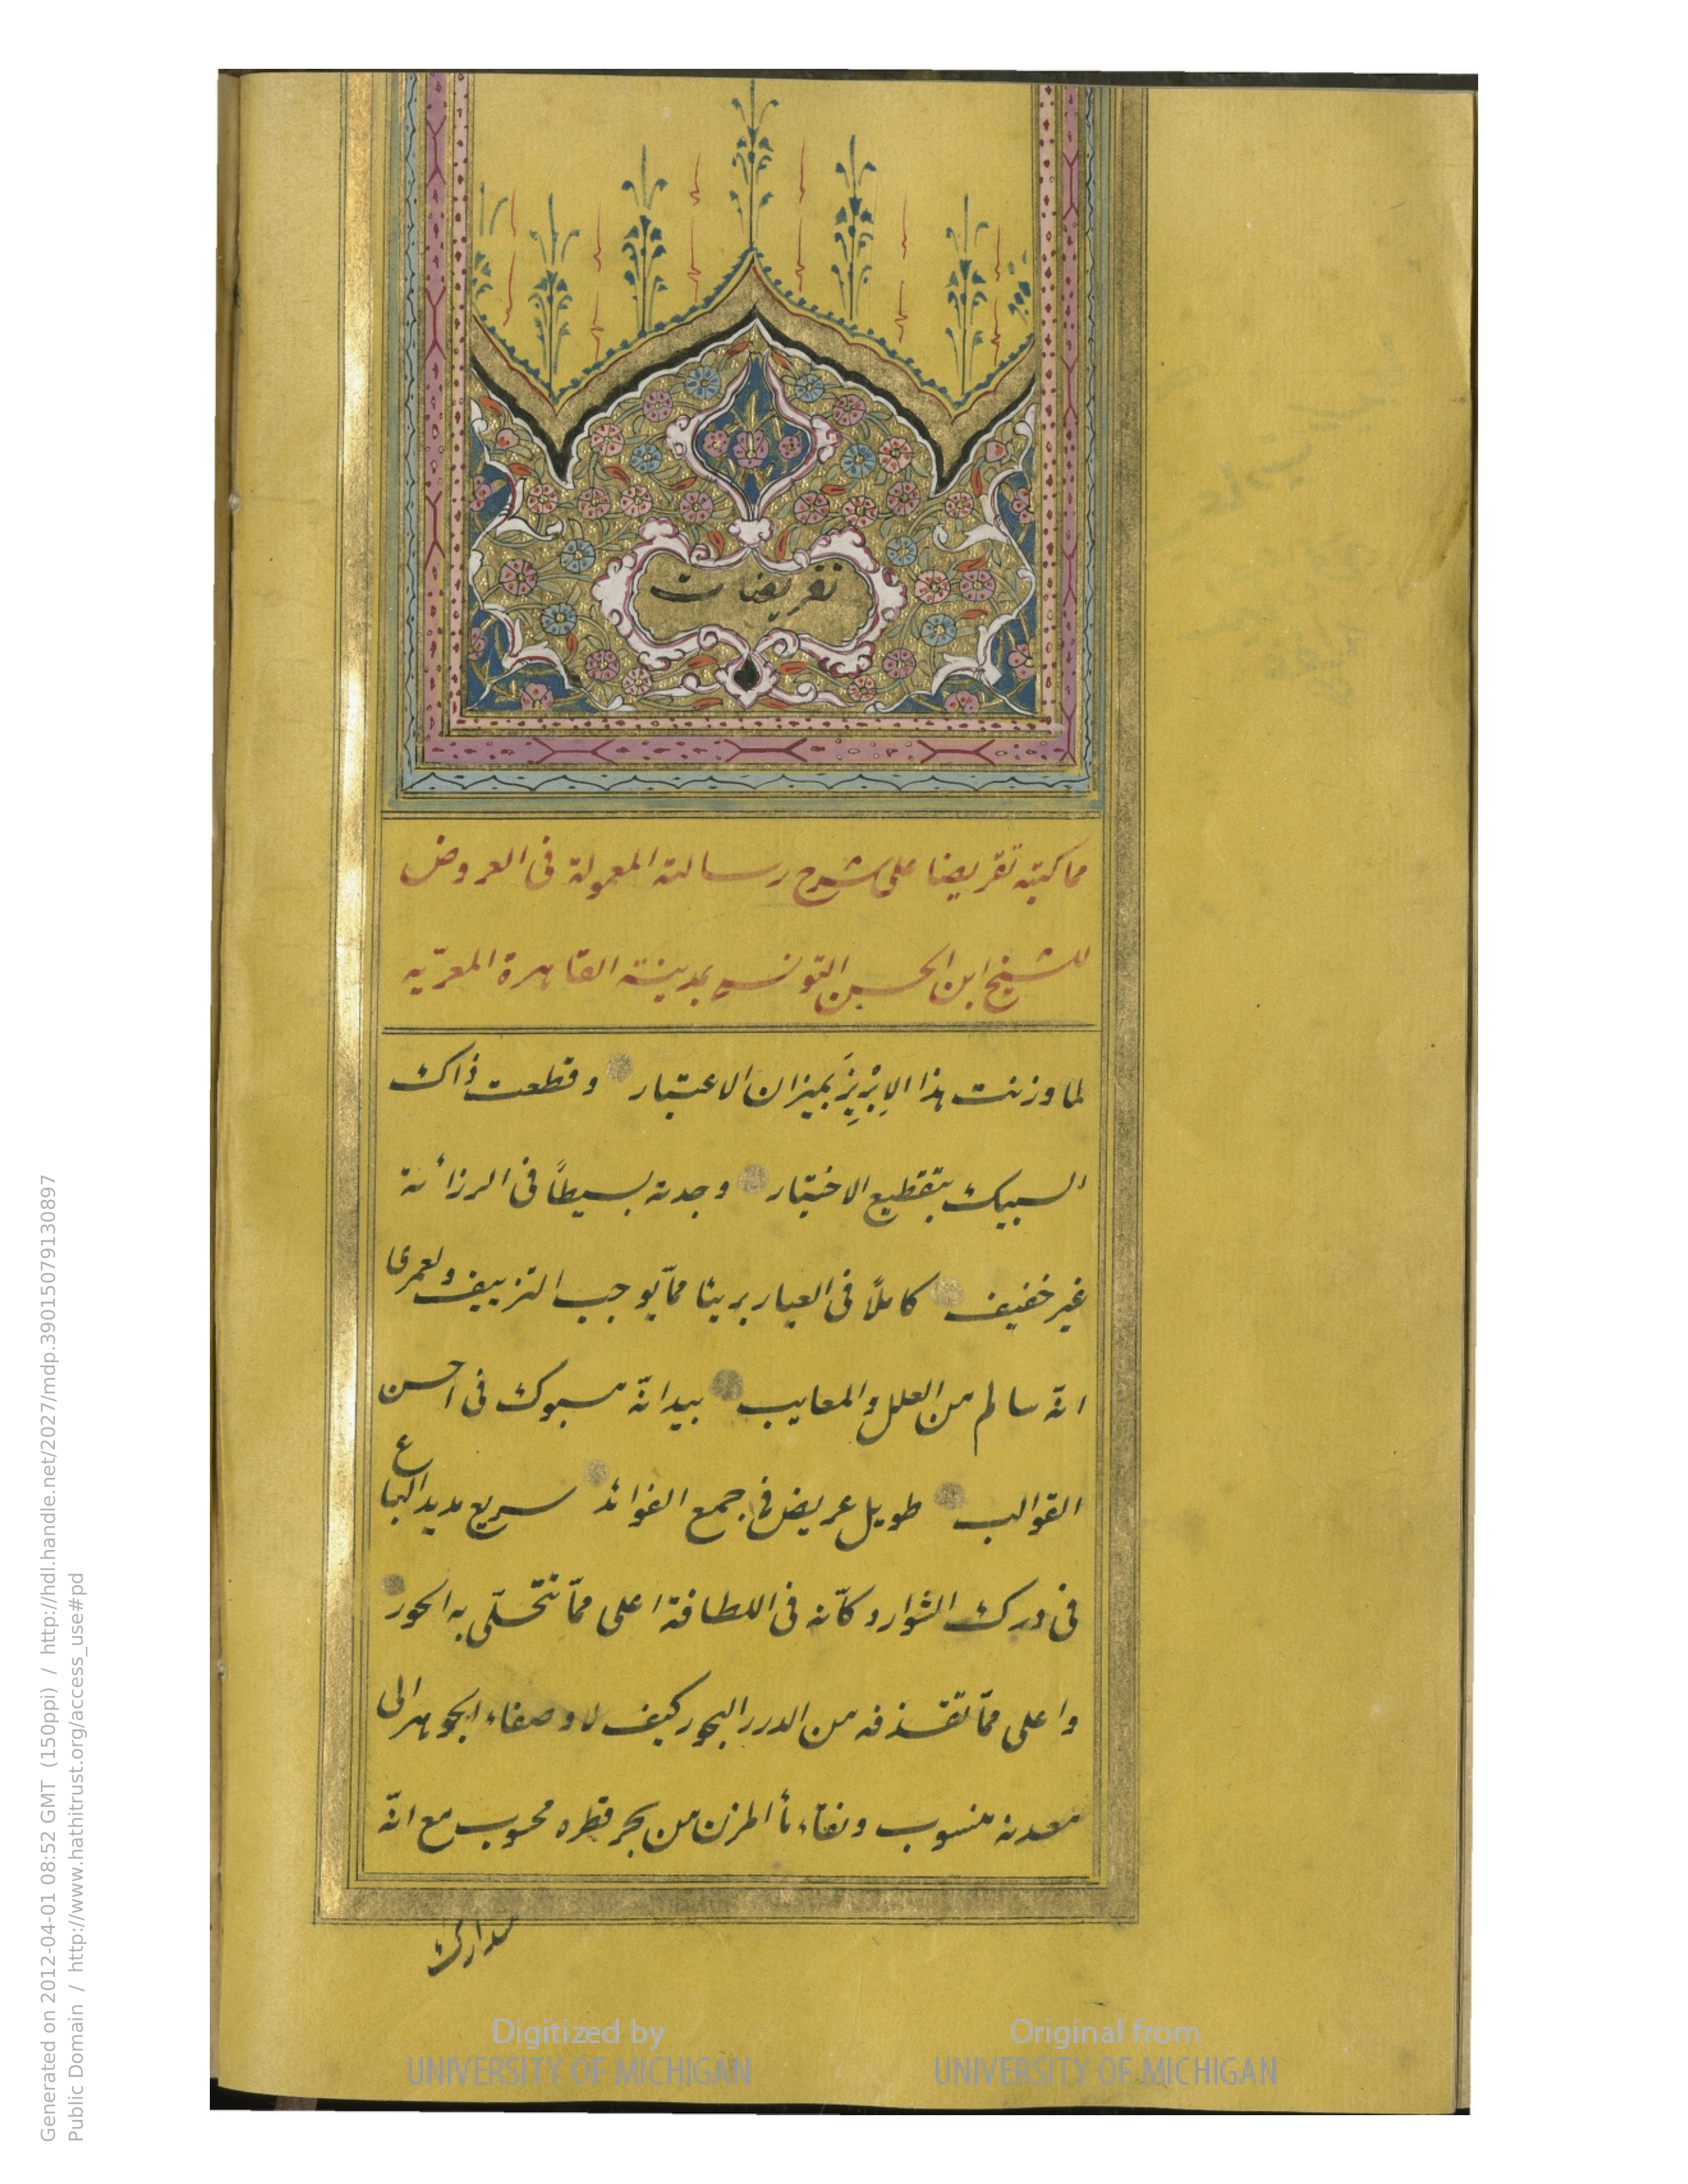 تقريضات
مما كتبته تقريضا على شرح رسالته المعمولة فى العروض
للشيخ ابن الحسين التونسى بمدينة القاهرة المعزيّه
لما وزنت هذا الاِبْرِيزَ بميزان الاعتبار وقطعت ذاك
السبيك بتقطيع الاختبار وجدته بسيطاً فى الرزانة
غير خفيف كاملاً فى العيار بريئا ممّا يوجب التزييف ولعمرى
انّه سالم من العلل والمعايب بيد انّه مسبوك فى احسن
القوالب طويل عريض فى جمع الفوائد سريع مديد الباع
فى درك الشوارد كأنه فى اللطافة اعلى ممّا تتحلّى به الحور
واعلى ممّا تقذفه من الدرر البحور كيف لا وصفاء الجوهر الى
معدنه منسوب ونقاء ماء المزن من بحر قطره محسوب مع انّه
مدارك
Digitized by
UNIVERSITY OF MICHIGAN
Original from
UNIVERSITY OF MICHIGAN
Generated on 2012-04-01 08:52 GMT (150ppi) / http://hdl.handle.net/2027/mdp.39015079130897
Public Domain / http://www.hathitrust.org/access_use#pd